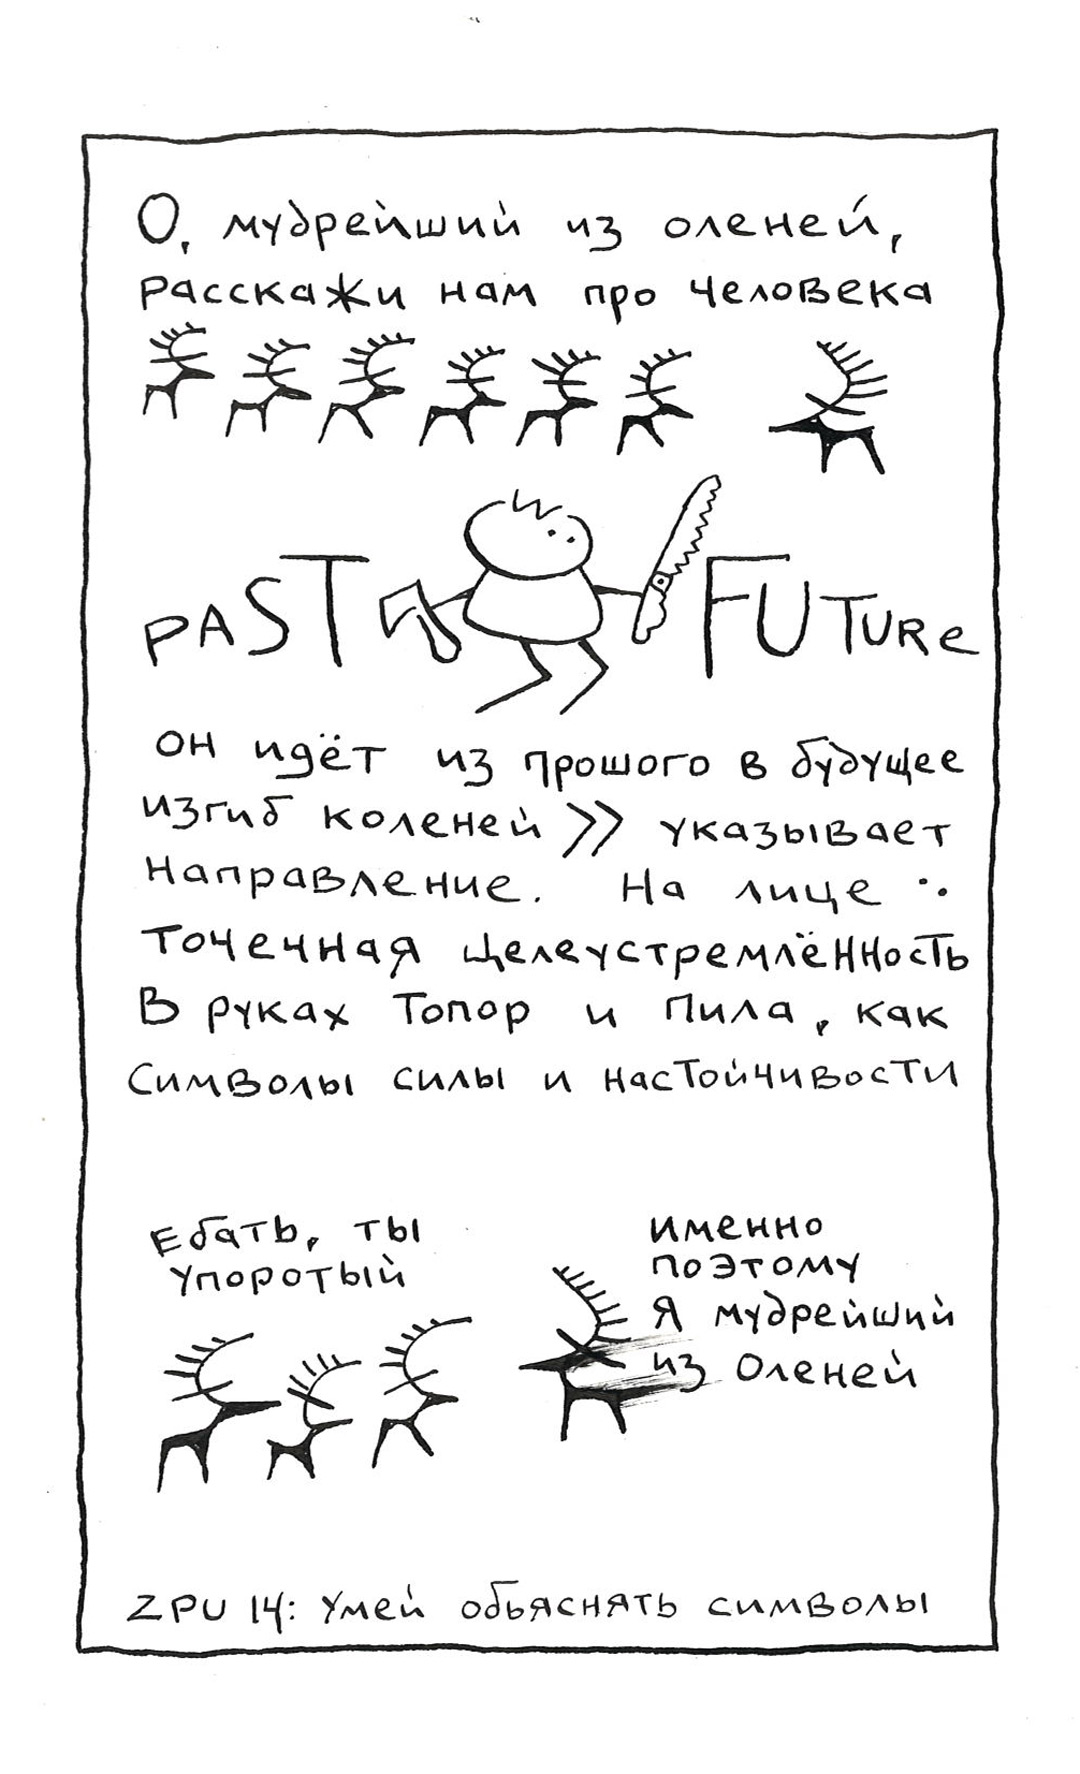 О, мудрейший из оленей,
расскажи нам про человека
PAST FUTURe
он идёт из прошого в будущее
изгиб коленей >> указывает
направление. На лице :.
точечная целеустремлённость
В руках Топор и Пила, как
символы силы и настойчивости
Ебать, ты
упоротый
именно
поэтому
Я мудрейший
из Оленей
ZPU 14: Умей обьяснять символы